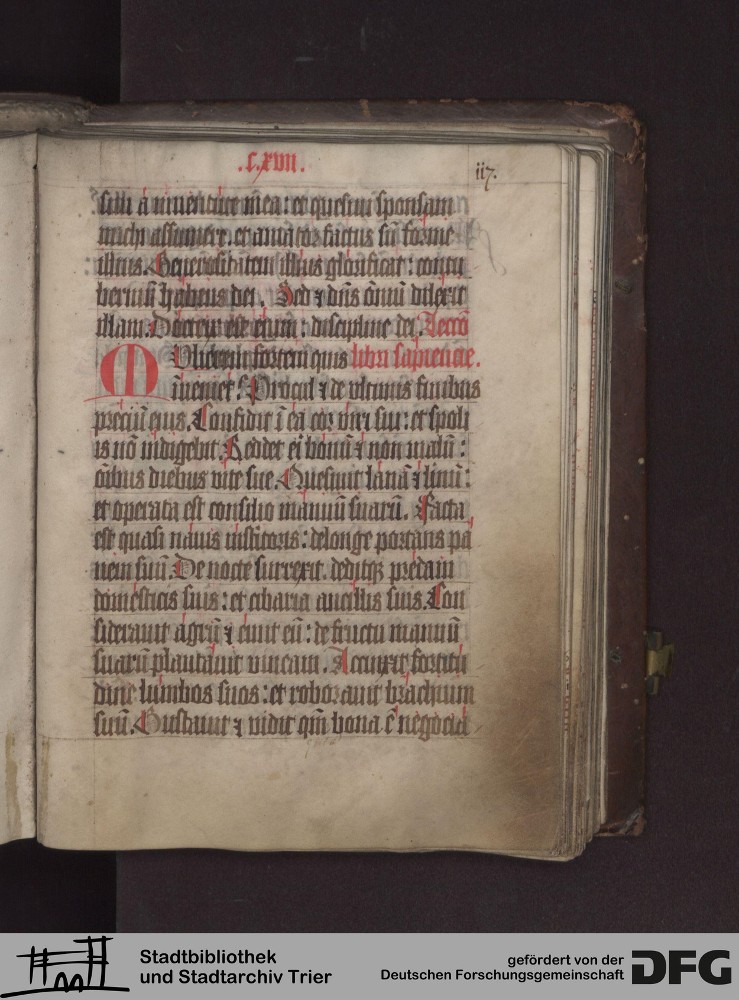 .C.xvii.
117.
siui a iuuentute mea: et quesiui sponsam
michi assumere. et amator factus sū forme
illius. Generositatem illius glorificat: contu
bernium habens dei. Sed ⁊ dn̄s om̄iū dilexit
illam. Doctrix est enim: discipline dei. Lectō
Mulierem fortem quis libri sapiencie.
īueniet? Procul ⁊ de vltimis finibus
preciū eius. Confidit ī ea cor viri sui: et spoli
is nō indigebit. Reddet ei bonū ⁊ non malū:
oībus diebus vite sue. Quesiuit lanā ⁊ linū:
et operata est consilio manuū suarū. Facta
est quasi nauis institoris: delonge portans pa
nem suū. De nocte surrexit. deditqꝫ predam
domesticis suis: et cibaria ancillis suis. Con
siderauit agrū ⁊ emit eū: de fructu manuū
suarū plantauit vineam. Accinxit fortitu
dine lumbos suos: et roborauit brachium
suū. Gustauit ⁊ vidit qm̄ bona ē negocia
Stadtbibliothek
und Stadtarchiv Trier
gefördert von der
Deutschen Forschungsgemeinschaft
DFG